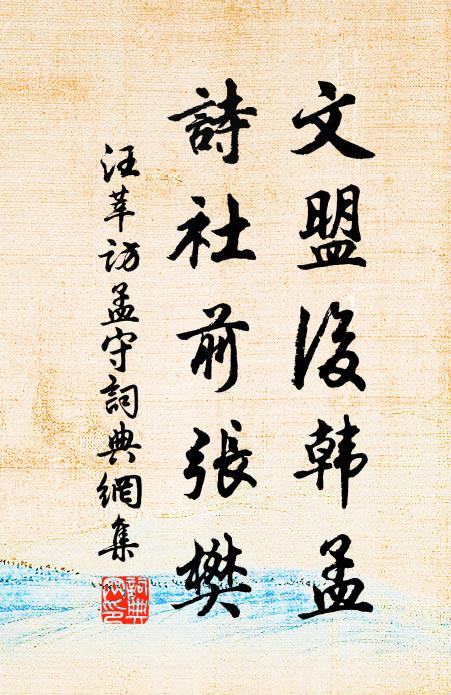 文盟後韩孟
詩社前張樊
汪莘访孟守詞典網集